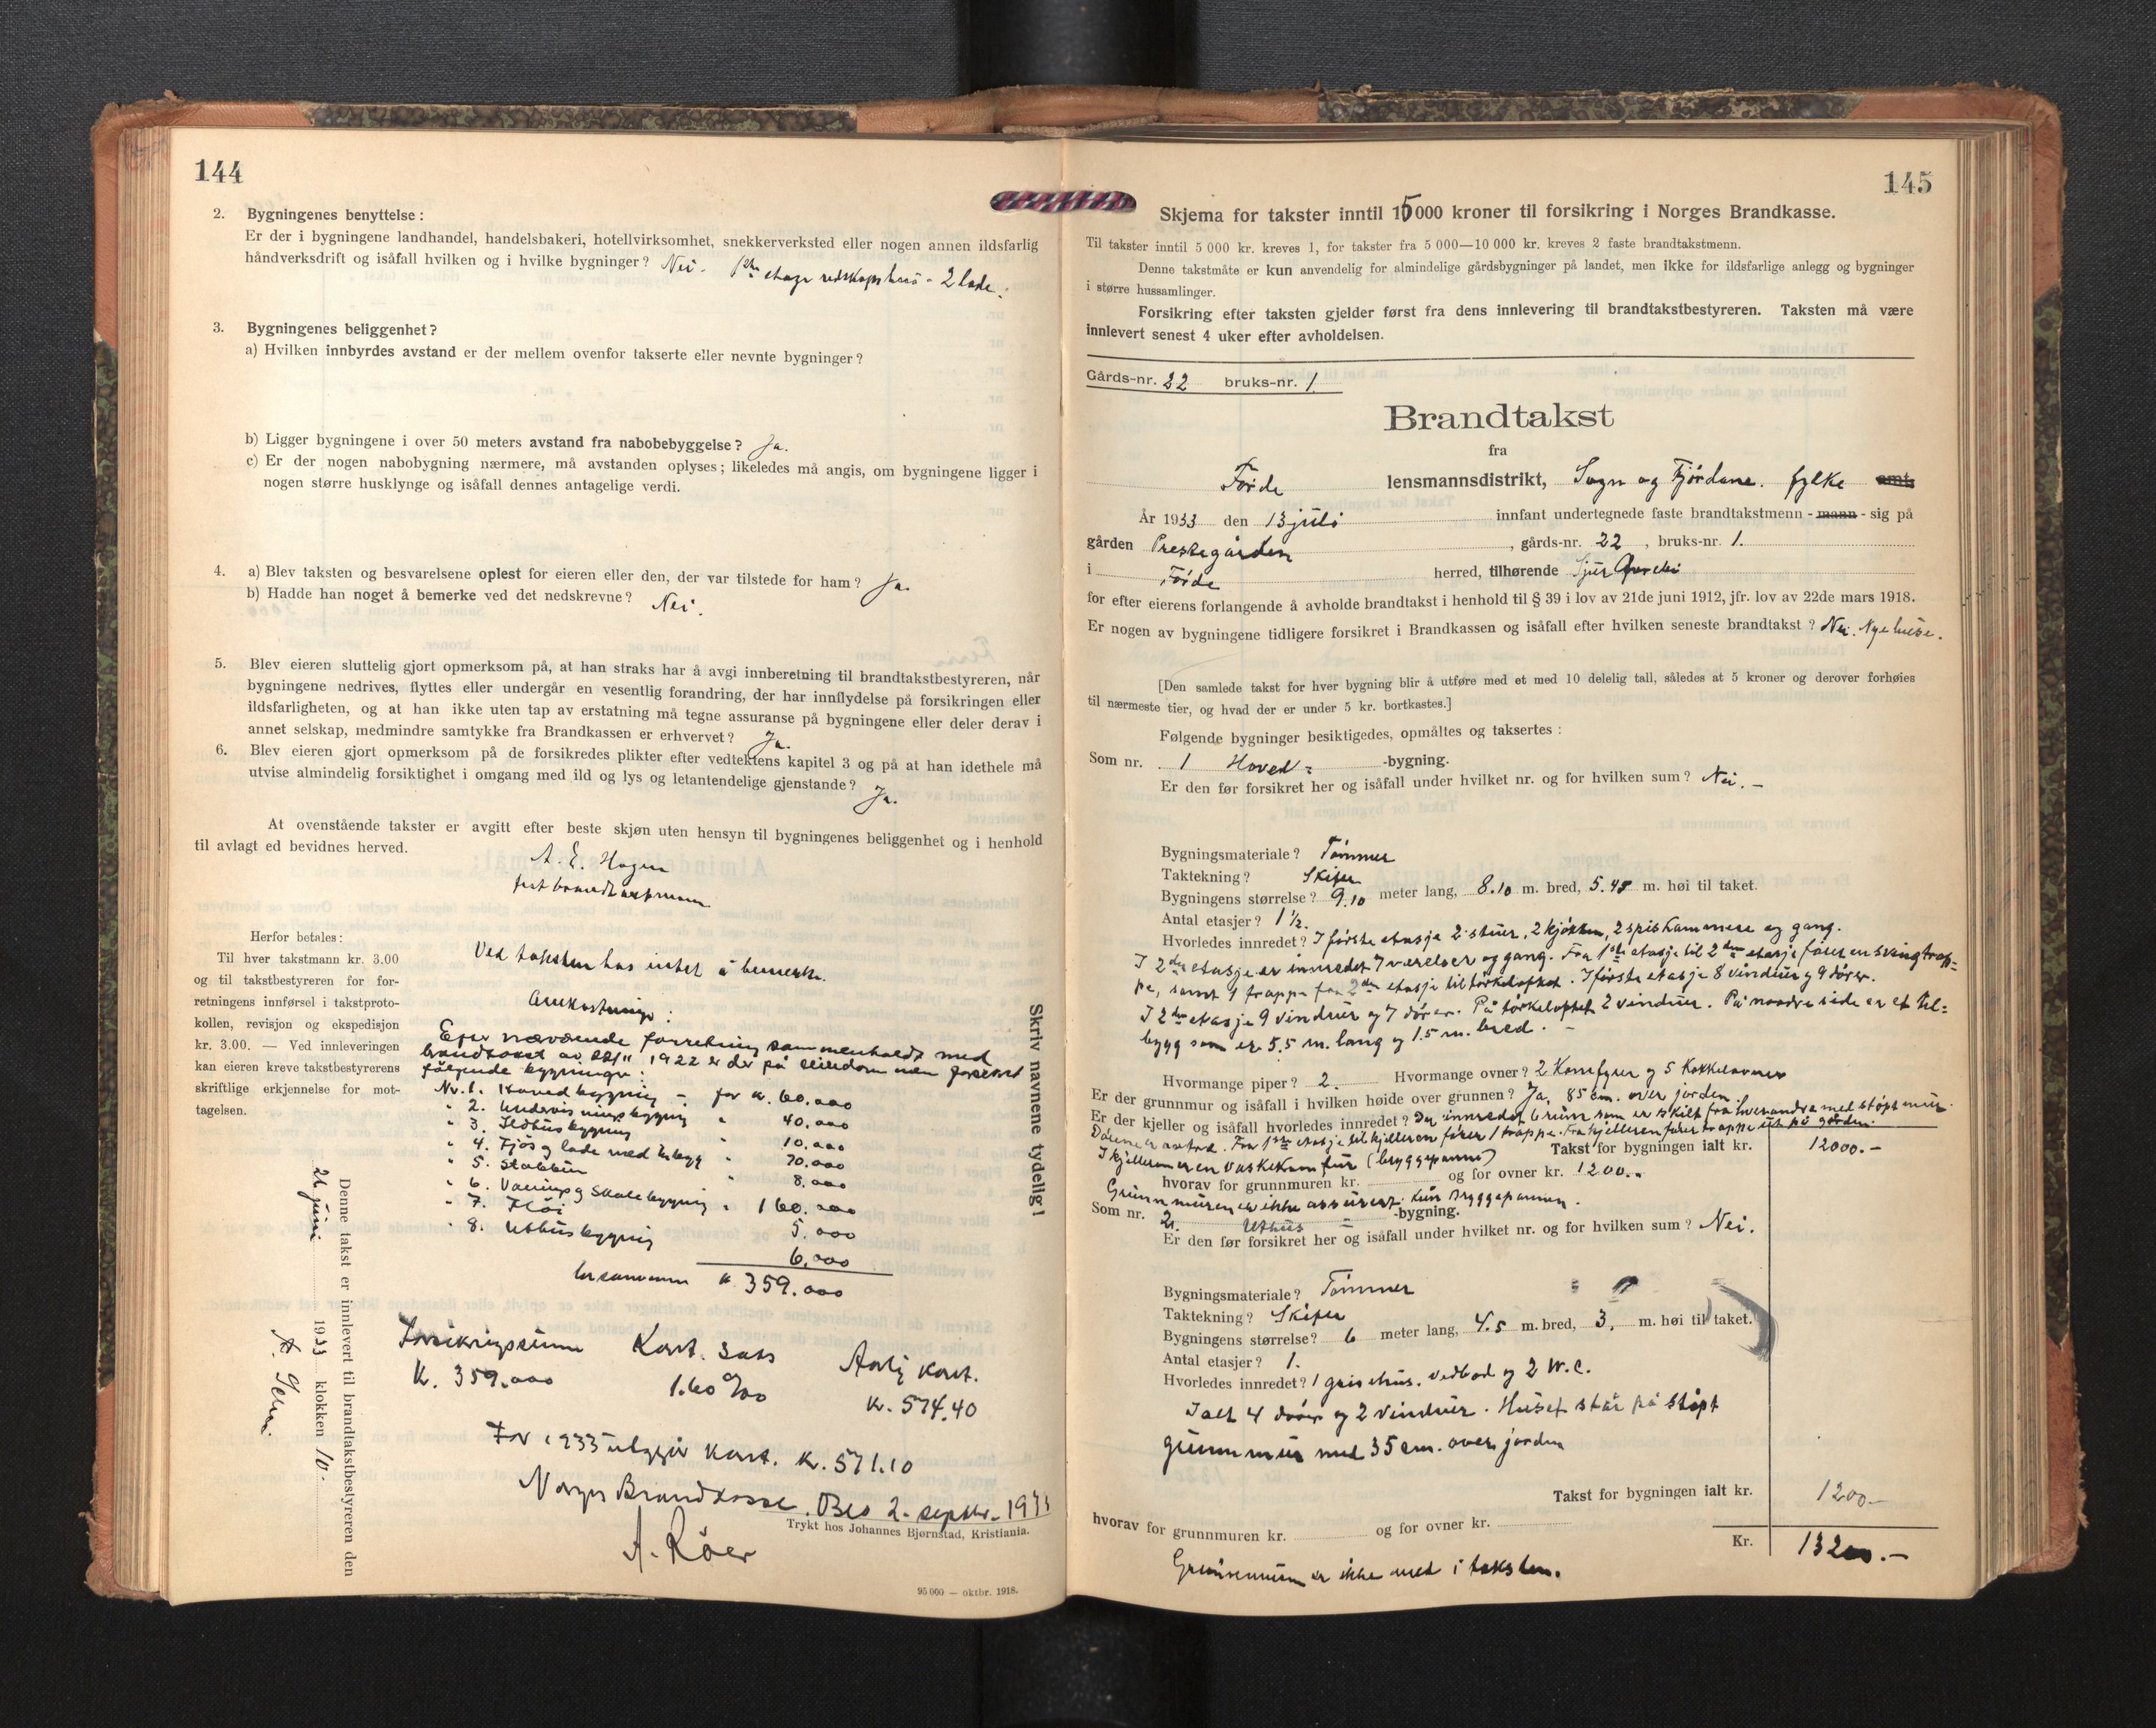 144
2. Bygningenes benyttelse:
Er der i bygningene landhandel, handelsbakeri, hotellvirksomhet, snekkerverksted eller nogen annen ildsfarlig
håndverksdrift og isåfall hvilken og i hvilke bygninger? Nei. 1ste etage redskapshus - 2 lade.
3. Bygningenes beliggenhet?
a) Hvilken innbyrdes avstand er der mellem ovenfor takserte eller nevnte bygninger?
b) Ligger bygningene i over 50 meters avstand fra nabobebyggelse? Ja.
c) Er der nogen nabobygning nærmere, må avstanden oplyses; likeledes må angis, om bygningene ligger i
nogen større husklynge og isåfall dennes antagelige verdi.
4. a) Blev taksten og besvarelsene oplest for eieren eller den, der var tilstede for ham? Ja.
b) Hadde han noget å bemerke ved det nedskrevne? Nei.
5. Blev eieren sluttelig gjort opmerksom på, at han straks har å avgi innberetning til brandtakstbestyreren, når
bygningene nedrives, flyttes eller undergår en vesentlig forandring, der har innflydelse på forsikringen eller
ildsfarligheten, og at han ikke uten tap av erstatning må tegne assuranse på bygningene eller deler derav i
annet selskap, medmindre samtykke fra Brandkassen er erhvervet? Ja.
6. Blev eieren gjort opmerksom på de forsikredes plikter efter vedtektens kapitel 3 og på at han idethele må
utvise almindelig forsiktighet i omgang med ild og lys og letantendelige gjenstande? Ja.
At ovenstående takster er avgitt efter beste skjøn uten hensyn til bygningenes beliggenhet og i henhold
til avlagt ed bevidnes herved.
A. E. Hagen
fast brandtakstmann
Herfor betales:
Til hver takstmann kr. 3.00
og til takstbestyreren for for-
retningens innførsel i takstproto-
kollen, revisjon og ekspedisjon
kr. 3.00. — Ved innleveringen
kan eieren kreve takstbestyrerens
skriftlige erkjennelse for mot-
tagelsen.
Ved taksten has intet å bemerke.
Anmerkninger:
Efter nærværende forretning sammenholdt med
brandtakst av 1922 er der på eiendommen forsikret
følgende bygninger:
Nr. 1. Hovedbygning - for kr. 60.000
" 2. Undervisningsbygning " 40.000
" 3. Ildhusbygning " 10.000
" 4. Fjøs og lade med tilbygg " 70.000
" 5. Stabbur " 8.000
" 6. Våning og Skolebygning " 160.000
" 7. 5.000
" 8. Uthusbygning 6.000
tilsammen kr. 359.000
Forsikringssum Kont. sats Aarlig kont.
Kr. 359.000 1.60 ‰ Kr. 574.40
For 1933 utgjør kont. kr. 571.10
Norges Brandkasse, Oslo 2. septbr. 1933
A. Röer
Skriv navnene tydelig!
Denne takst er innlevert til brandtakstbestyreren den
21 juni 1933 klokken 10.
Trykt hos Johannes Bjørnstad, Kristiania.
95 000 — oktbr. 1918.
145
Skjema for takster inntil 15000 kroner til forsikring i Norges Brandkasse.
Til takster inntil 5 000 kr. kreves 1, for takster fra 5 000—10 000 kr. kreves 2 faste brandtakstmenn.
Denne takstmåte er kun anvendelig for almindelige gårdsbygninger på landet, men ikke for ildsfarlige anlegg og bygninger
i større hussamlinger.
Forsikring efter taksten gjelder først fra dens innlevering til brandtakstbestyreren. Taksten må være
innlevert senest 4 uker efter avholdelsen.
Gårds-nr. 22 bruks-nr. 1
Brandtakst
fra
Førde lensmannsdistrikt, Sogn og Fjordane. fylke amts
År 1933 den 13 juli innfant undertegnede faste brandtakstmenn - mann - sig på
gården Prestegården, gårds-nr. 22, bruks-nr. 1.
i Førde herred, tilhørende Sjur
for efter eierens forlangende å avholde brandtakst i henhold til § 39 i lov av 21de juni 1912, jfr. lov av 22de mars 1918.
Er nogen av bygningene tidligere forsikret i Brandkassen og isåfall efter hvilken seneste brandtakst? Nei. Nye huse.
[Den samlede takst for hver bygning blir å utføre med et med 10 delelig tall, således at 5 kroner og derover forhøies
til nærmeste tier, og hvad der er under 5 kr. bortkastes.]
Følgende bygninger besiktigedes, opmåltes og taksertes:
Som nr. 1 Hoved- -bygning.
Er den før forsikret her og isåfall under hvilket nr. og for hvilken sum? Nei. -
Bygningsmateriale? Tømmer
Taktekning? Skifer
Bygningens størrelse? 9.10 meter lang, 8.10 m. bred, 5.45 m. høi til taket.
Antal etasjer? 1 ½.
Hvorledes innredet? I første etasje 2 stuer, 2 kjøkken, 2 spiskammere og gang.
I 2den etasje er innredet 7 værelser og gang. Fra 1ste etasje til 2den etasje fører en svingtrap-
pe, samt 1 trappe fra 2den etasje til tørkeloftet. I første etasje 8 vinduer og 9 dører.
I 2den etasje 9 vinduer og 7 dører. På tørkeloftet 2 vinduer. På nordre side er et til-
bygg som er 5.5 m. lang og 1.5 m. bred. -
Hvormange piper? 2. Hvormange ovner? 2 Komfyrer og 5 Kakkelovner
Er der grunnmur og isåfall i hvilken høide over grunnen? Ja, 85 cm. over jorden.
Er der kjeller og isåfall hvorledes innredet? Ja innredet 6 rum som er skilt fra hverandre med støpt mur.
Fra 1ste etasje til kjelleren fører 1 trappe. Fra kjelleren fører trappe ut på gården.
I kjelleren er en vaskekomfur (bryggepanne) Takst for bygningen ialt kr. 12000.-
hvorav for grunnmuren kr. og for ovner kr. 1200.-
Grunnmuren er ikke assurert. Kun bryggepannen.
Som nr. 2. Uthus - -bygning.
Er den før forsikret her og isåfall under hvilket nr. og for hvilken sum? Nei.
Bygningsmateriale? Tømmer
Taktekning? Skifer
Bygningens størrelse? 6 meter lang, 4.5 m. bred, 3. m. høi til taket.
Antal etasjer? 1.
Hvorledes innredet? 1 grisehus. vedbod og 2 W.C.
Ialt 4 dører og 2 vinduer. Huset står på støpt
grunnmur med 35 cm. over jorden
Takst for bygningen ialt kr. 1200.-
hvorav for grunnmuren kr. og for ovner kr.
Kr. 13200.-
Grunnmuren er ikke med i taksten.